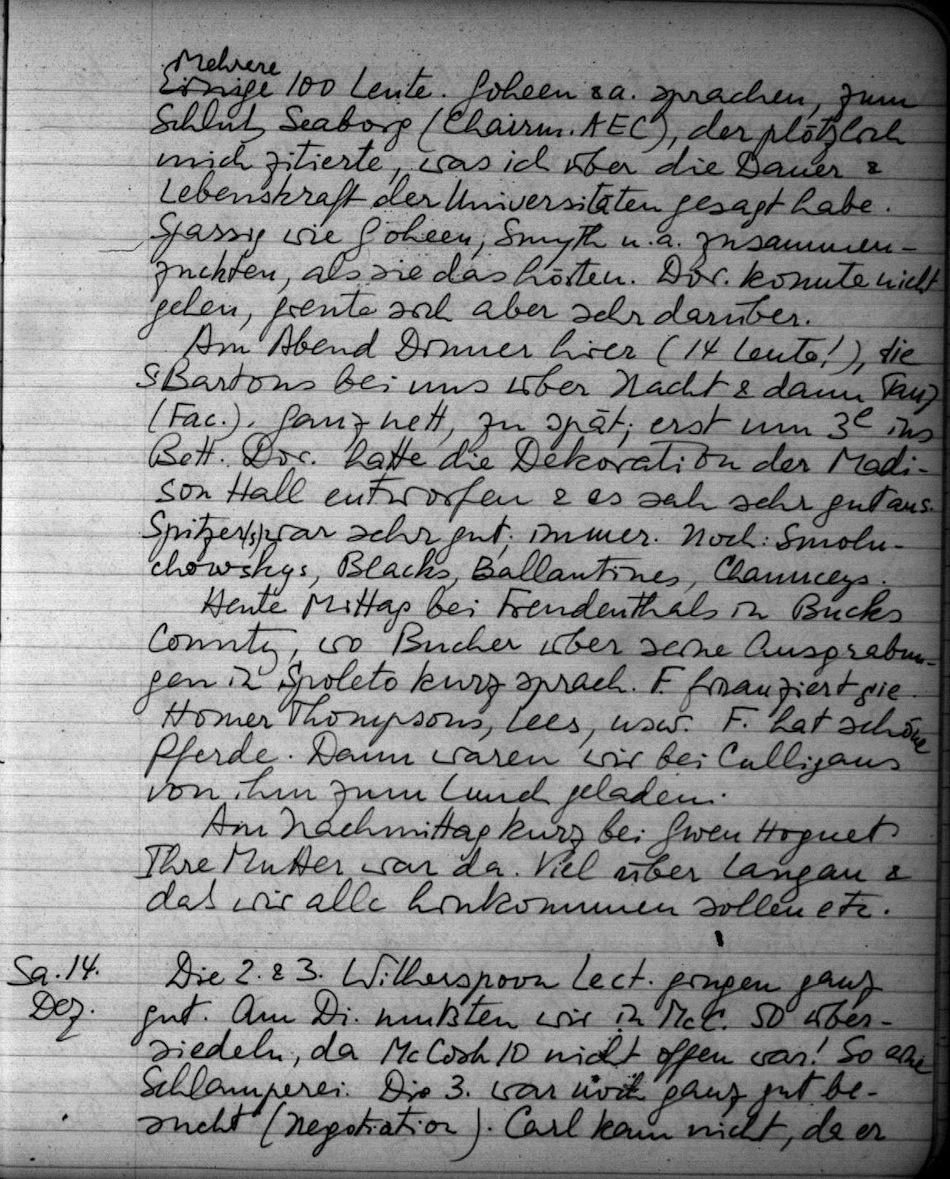 Mehrere
Einige 100 Leute. Goheen & a. sprachen, zum
Schluß Seaborg (Chairm. AEC), der plötzlich
mich zitierte, was ich über die Dauer &
Lebenskraft der Universitäten gesagt habe.
Spassig wie Goheen, Smyth u. a. zusammen-
zuckten, als sie das hörten. Dor. konnte nicht
gehen, freute sich aber sehr darüber.
Am Abend Dinner hier (14 Leute!), die
Bartons bei uns über Nacht & dann Tanz
(Fac.). Ganz nett, zu spät; erst um 3 ins
Bett. Dor. hatte die Dekoration der Madi-
son Hall entworfen & es sah sehr gut aus.
Spitzer(s) war sehr gut, immer. Noch: Smolu-
chowskys, Blacks, Ballantines, Chaunceys.
Heute Mittag bei Freudenthals in Bucks
County, wo Bucher über seine Ausgrabun-
gen in Spoleto kurz sprach. F. finanziert sie.
Homer Thompsons, Lees, usw. F. hat schöne
Pferde. Dann waren wir bei Culligans
von ihm zum Lunch geladen.
Am Nachmittag kurz bei Gwen Hoguet
Ihre Mutter war da. Viel über Langau &
daß wir alle hinkommen sollen etc.
Sa. 14. Die 2. & 3. Witherspoon Lect. gingen ganz
Dez. gut. Am Di. mußten wir in McC. 50 über-
siedeln, da McCosh 10 nicht offen war! So eine
Schlamperei. Die 3. war ganz gut be-
sucht (Negotiation). Carl kam nicht, da er